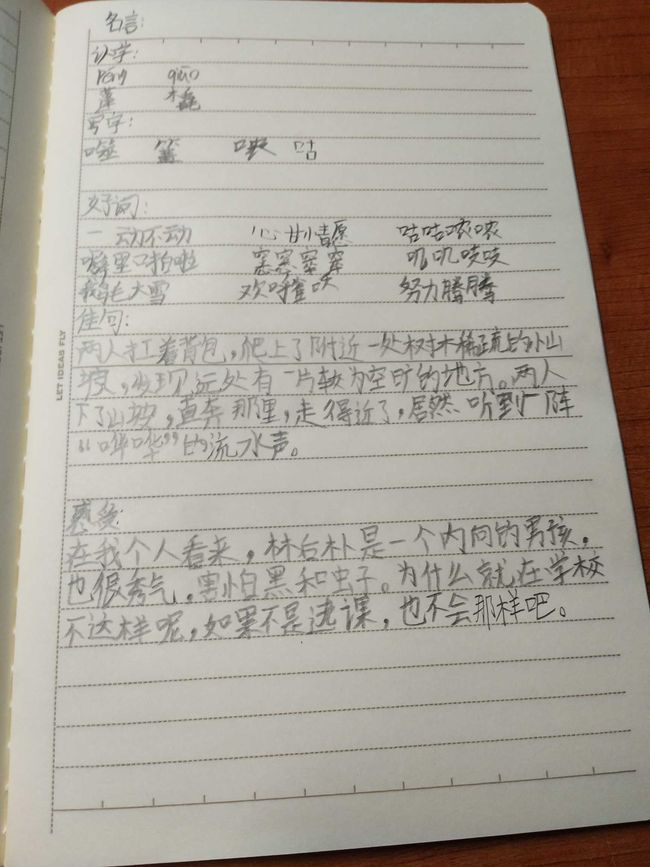 名言:
认字:
péng qiāo
蓬 橇
写字:
噬 篝 嗷 咕
好词:
一动不动 心甘情愿 咕咕哝哝
噼里啪啦 窸窸窣窣 叽叽吱吱
鹅毛大雪 欢呼雀跃 努力腾腾
佳句:
两人扛着背包,爬上了附近一处树木稀疏的小山
坡,发现远处有一片较为空旷的地方。两人
下了山坡,直奔那里,走得近了,居然听到一阵
“哗哗”的流水声。
感受:
在我个人看来,林石朴是一个内向的男孩,
也很秀气,害怕黑和虫子。为什么就在学校
不这样呢,如果不是逃课,也不会那样吧。
LET IDEAS FLY